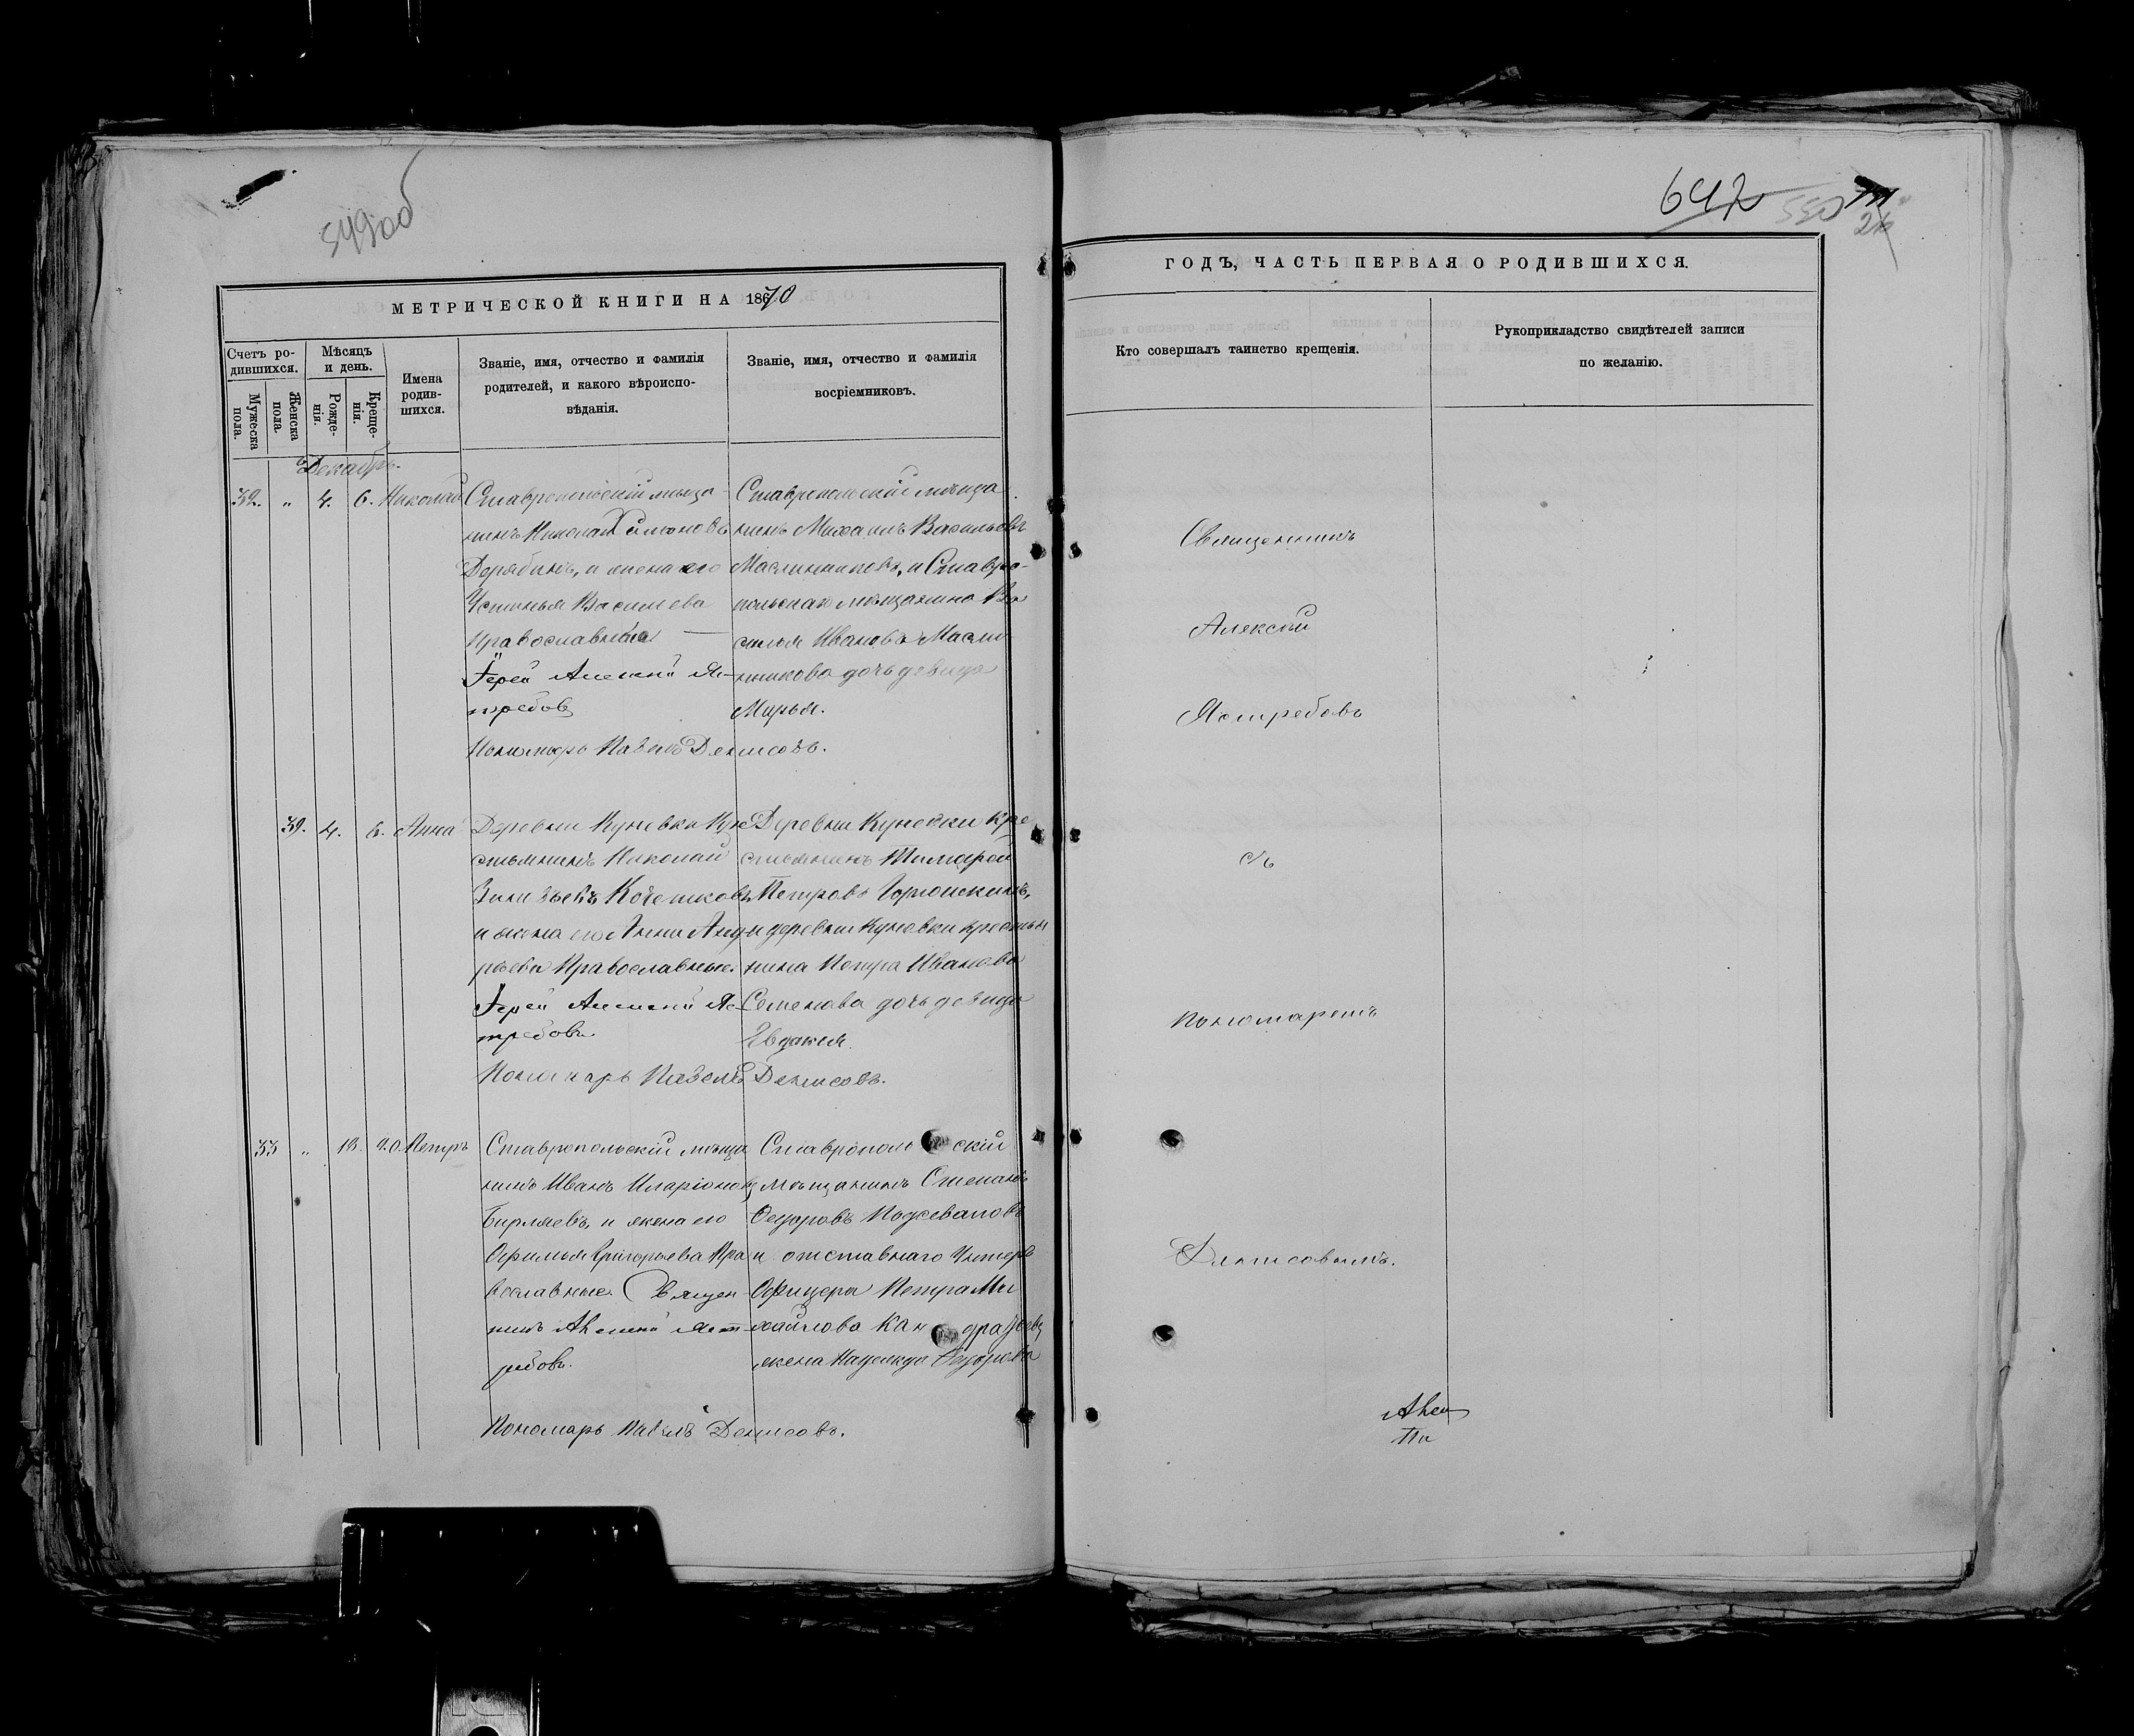 549об
647
550
МЕТРИЧЕСКОЙ КНИГИ НА 1870
ГОДЪ, ЧАСТЬ ПЕРВАЯ О РОДИВШИХСЯ.
Счетъ ро-
дившихся.
Мужеска
пола.
Женска
пола.
Мѣсяцъ
и день.
Рожде-
нія.
Креще-
нія.
Имена
родив-
шихся.
Званіе, имя, отчество и фамилія
родителей, и какого вѣроиспо-
вѣданія.
Званіе, имя, отчество и фамилія
воспріемниковъ.
Кто совершалъ таинство крещенія.
Рукоприкладство свидѣтелей записи
по желанію.
Декабрь.
32. " 4. 6. Николай
Ставропольскій мѣща-
нинъ Николай
Дерябинъ, и жена его
Устинья Василиева
Православные
Іерей Алексій Яс-
требовъ
Пономарь Павелъ Денисовъ.
Ставропольскій мѣща
нинъ Михаилъ Васильевъ
Маслянниковъ, и Ставро-
польская мѣщанина Ва
силья Иванова Масля
нникова дочь девица
Марья.
39. 4. 6. Анна
Деревни Куневки Кре
стьянинъ Николай
Зиновьевъ
и жена его Анна Анд
рѣева Православные.
Іерей Алексій Яс-
требовъ.
Пономарь Павелъ Денисовъ.
Деревни Куневки Кре
стьянинъ Тимофей
Петровъ
и деревни Куневки крестьян
нина Петра Иванова
Семенова дочь девица
Евдокия.
33 " 18. 20. Петръ
Ставропольскій мѣща
нинъ Иванъ Иларіоновъ
Бирляевъ, и жена его
Офимья Григорьева Пра
вославные. Священ-
никъ Алексій Яст-
ребовъ.
Пономарь Павелъ Денисовъ.
Ставропольскій
мѣщанинъ Степанъ
Федоровъ
и отставнаго Унтеръ
Офицера Петра Ми
хайлова
жена Надежда Федорова
Священникъ
Алексѣй
Ястребовъ
съ
пономаремъ
Денисовымъ.